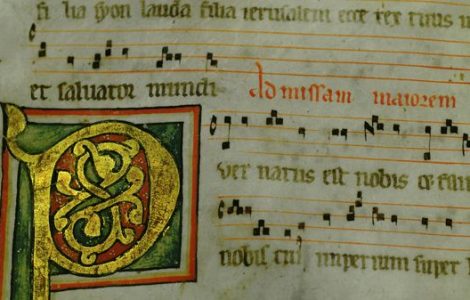 lia syon lauda filia ierusalem ecce rex tuus
et saluator mundi Ad missam maiorem
P
uer natus est nobis
nobis cui imperium super